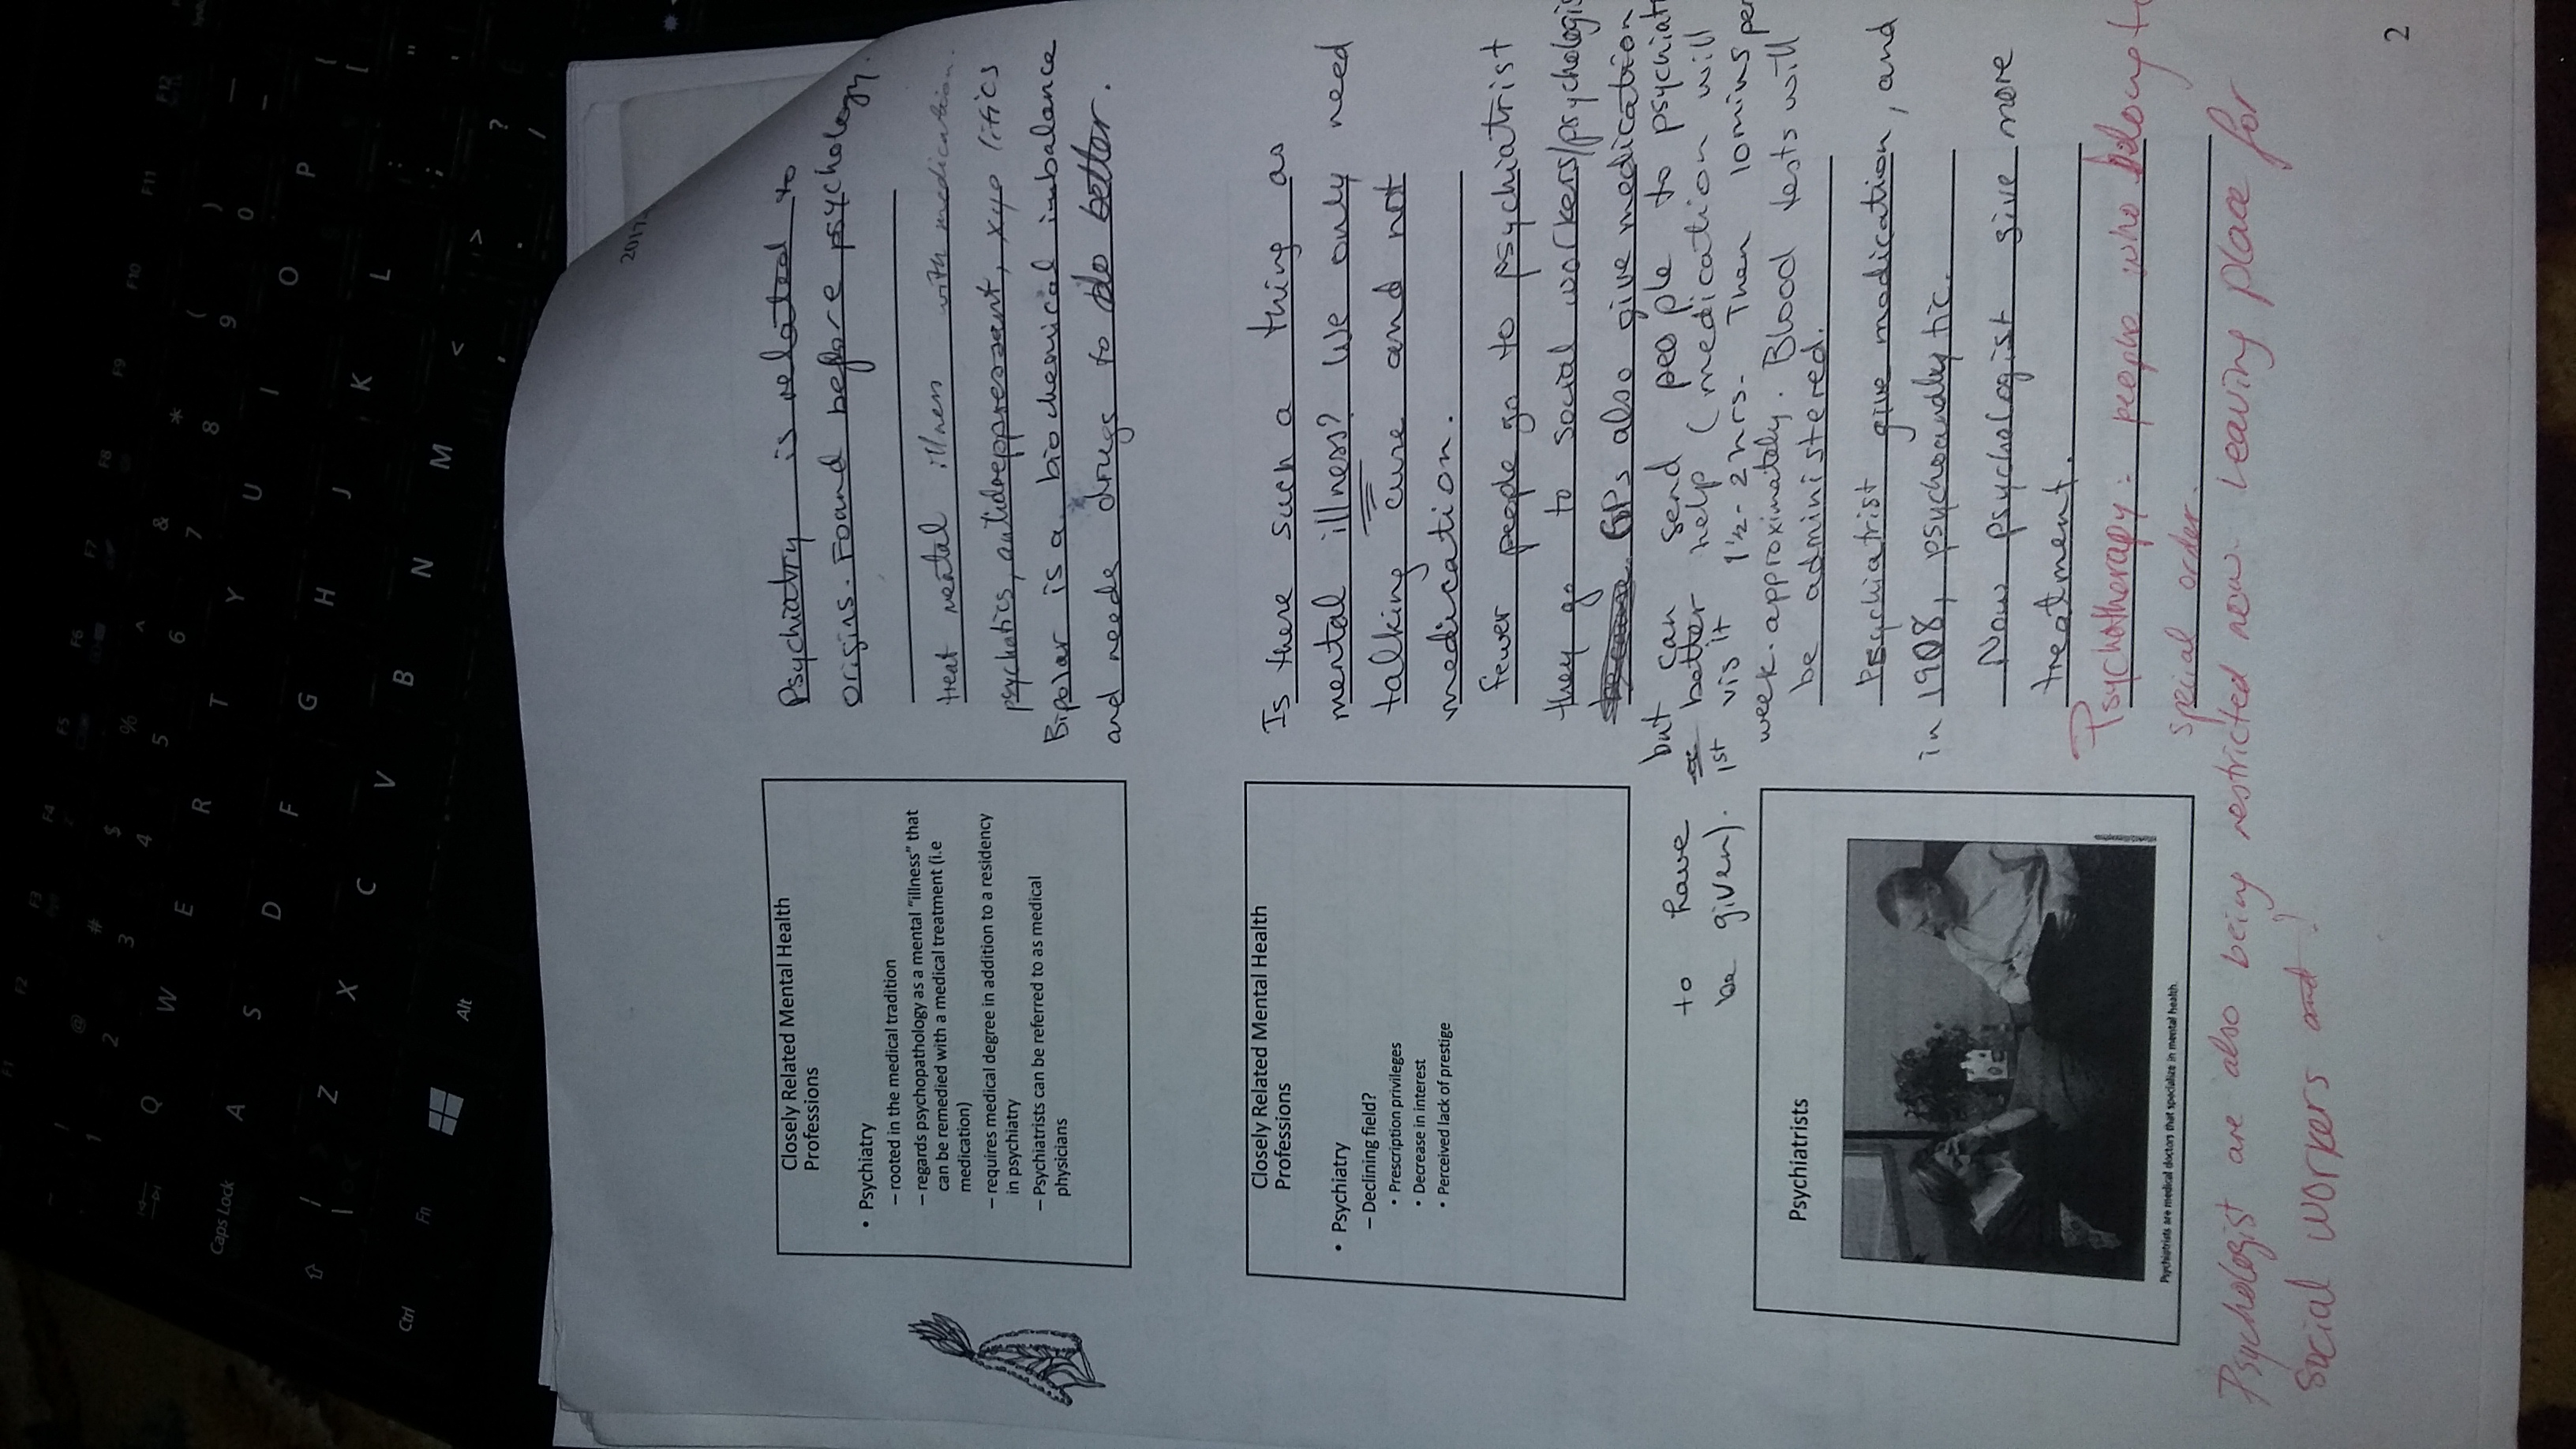 2017
Closely Related Mental Health
Professions
• Psychiatry
– rooted in the medical tradition
– regards psychopathology as a mental "illness" that
can be remedied with a medical treatment (i.e
medication)
– requires medical degree in addition to a residency
in psychiatry
– Psychiatrists can be referred to as medical
physicians
Psychiatry is related to
origins. Found before psychology.
treat mental illness with medication.
psychotics, antideppressant,
Bipolar is a biochemical imbalance
and needs drugs to do better.
Closely Related Mental Health
Professions
• Psychiatry
– Declining field?
• Prescription privileges
• Decrease in interest
• Perceived lack of prestige
Is there such a thing as
mental illness? We only need
talking cure and not
medication.
fewer people go to psychiatrist
they go to social workers/psychologis
GPs also give medication
but can send people to psychiat
to have better help (medication will
be given). 1st visit 1½-2 hrs. Then 10mins per
week. approximately. Blood tests will
be administered.
Psychiatrists
Psychiatrists are medical doctors that specialize in mental health.
Psychiatrist give medication, and
in 1908, psychoanalytic.
Now psychologist give more
treatment.
Psychotherapy: people who belong to
special order.
Psychologist are also being restricted now. Leaving place for
social workers and
2
Caps Lock
Ctrl
Fn
Alt
1 2 3 4 5 6 7 8 9 0
Q W E R T Y U I O P
A S D F G H J K L
Z X C V B N M